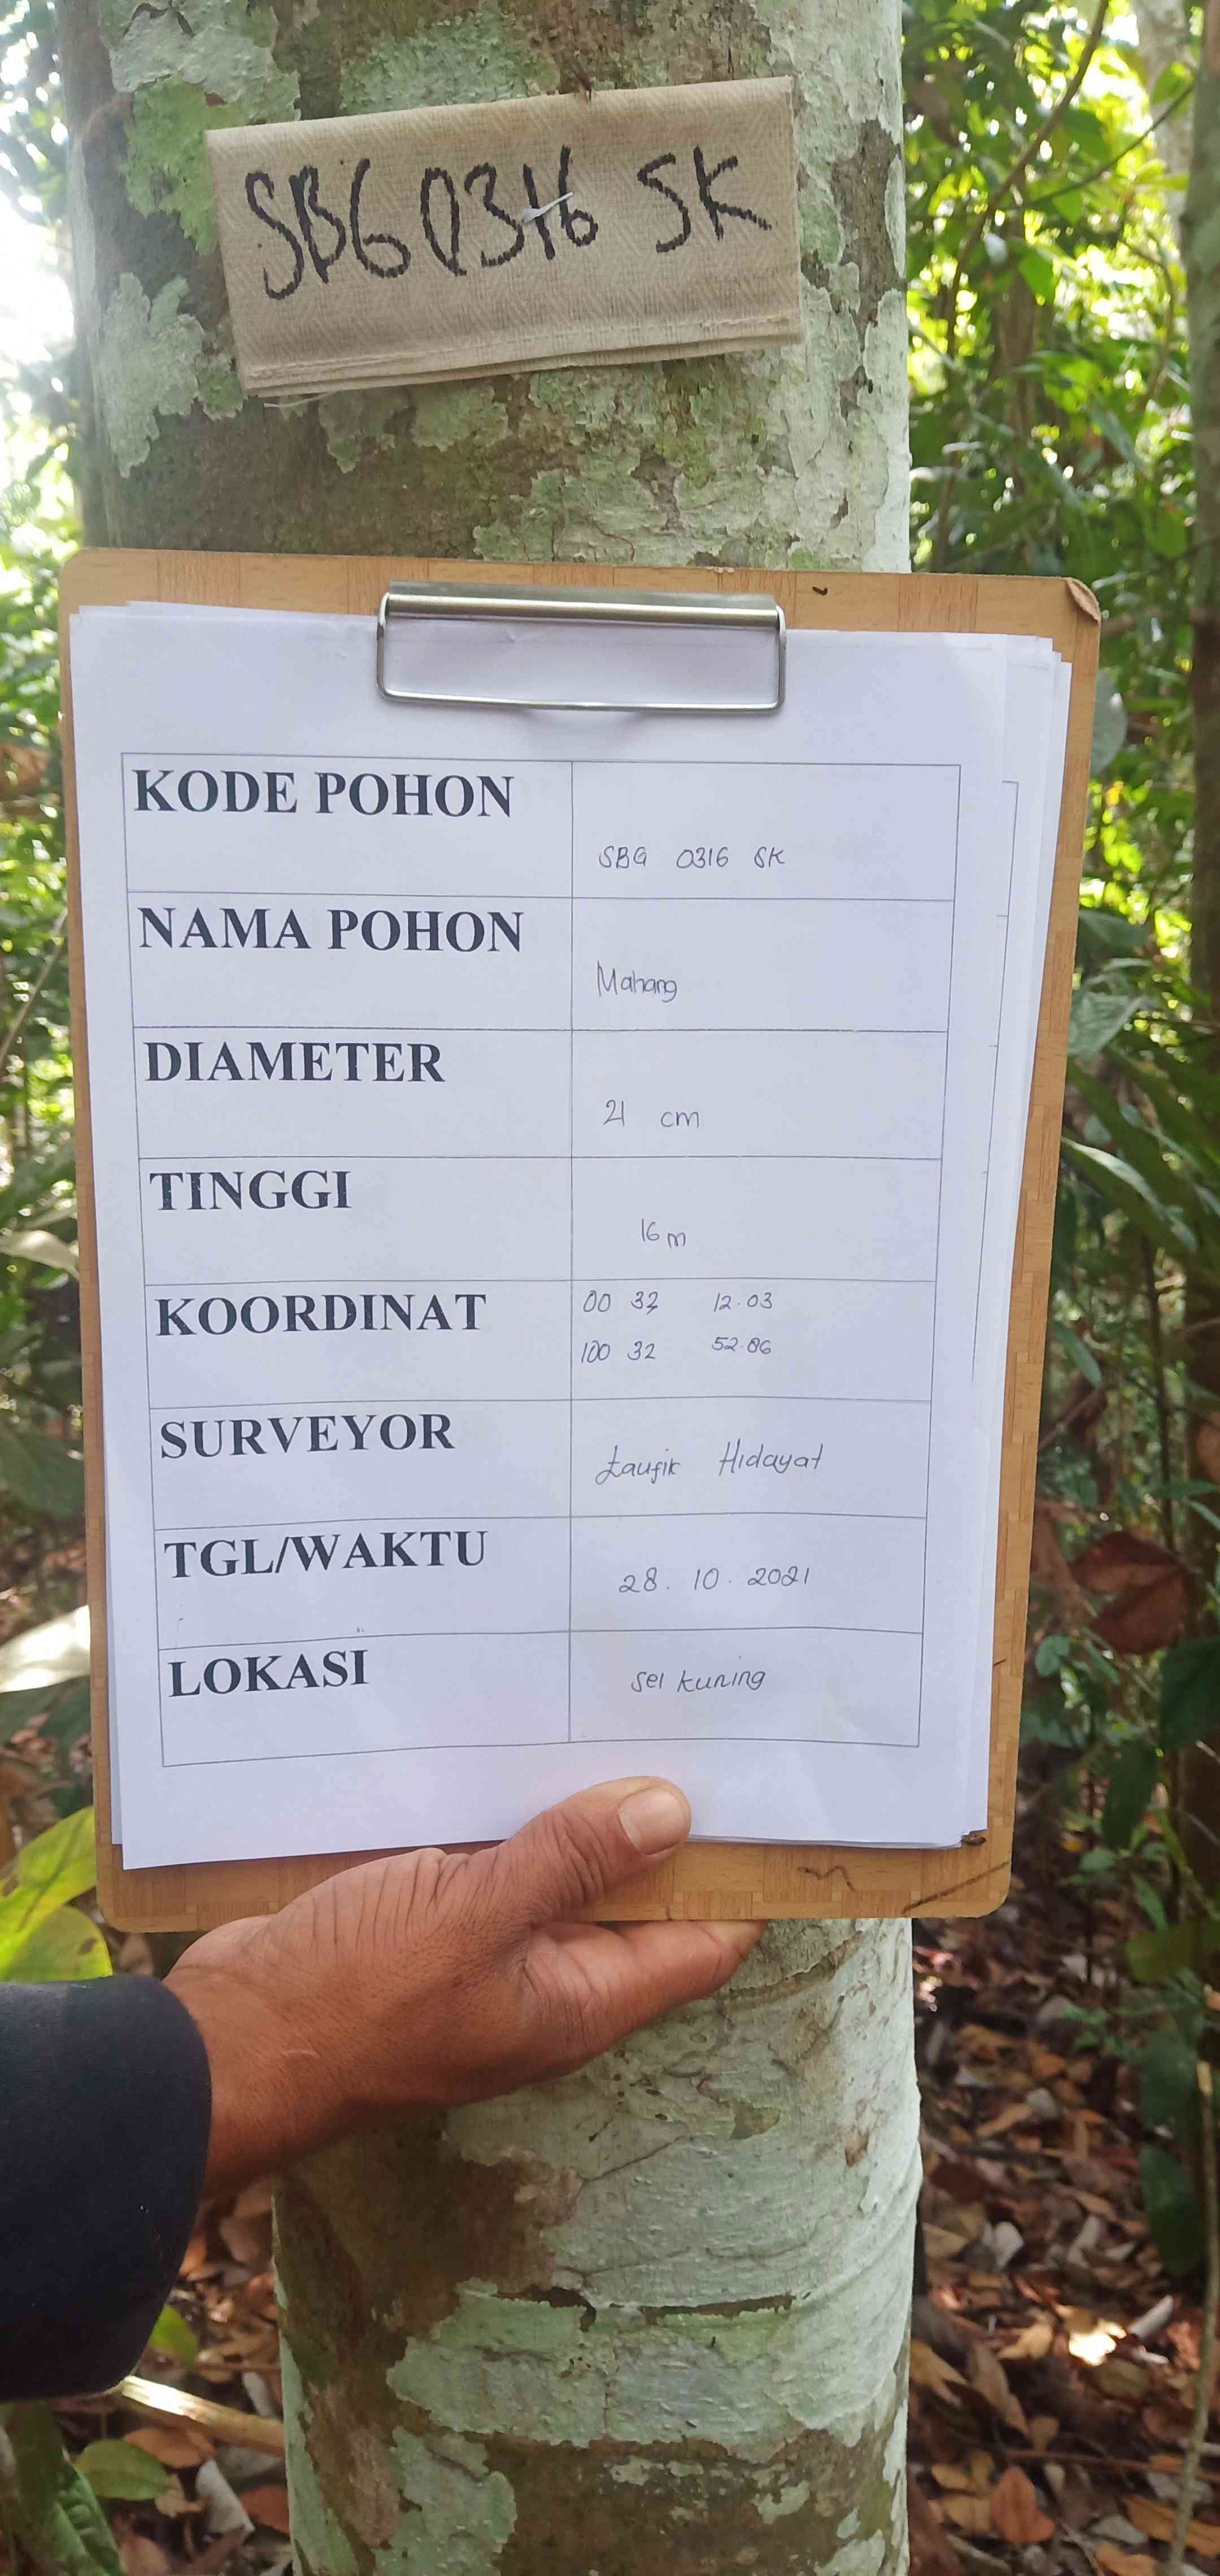 SBG 0316 SK
KODE POHON
SBG 0316 SK
NAMA POHON
Mahang
DIAMETER
21 cm
TINGGI
16 m
KOORDINAT
00 32 12.03
100 32 52.86
SURVEYOR
taufik Hidayat
TGL/WAKTU
28. 10. 2021
LOKASI
sei kuning